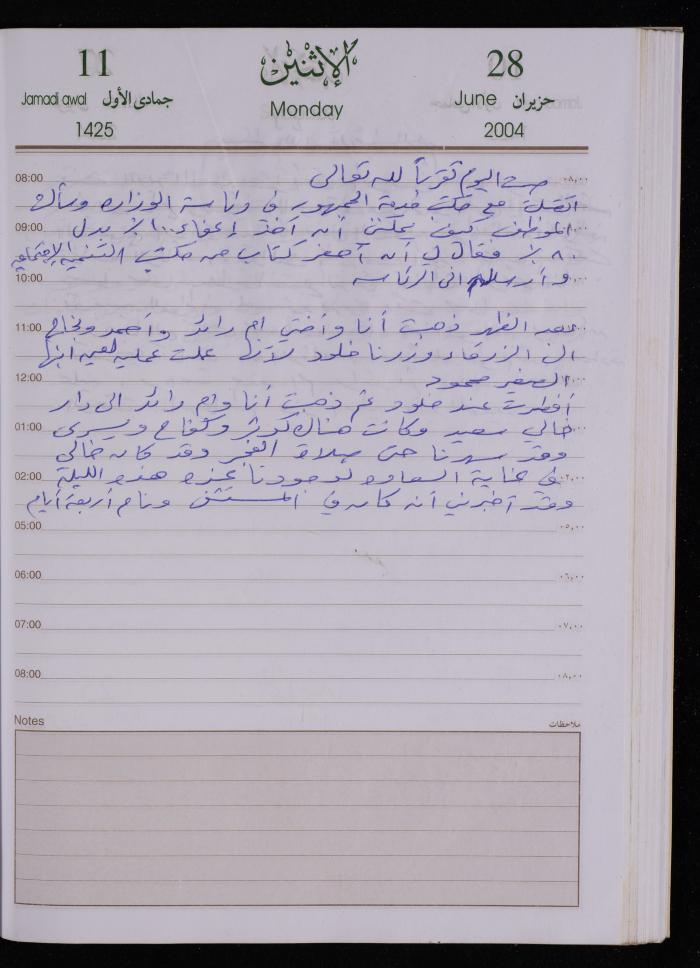 11 الإثنين 28
Jamadi awal جمادى الأول Monday June حزيران
1425 2004
08:00 صمت اليوم تقرباً لله تعالى ٠٨,٠٠
اتصلت مع مكتب خدمة الجمهور في رئاسة الوزاره وسألت
09:00 الموظف كيف يمكنني أن آخذ إعفاء ١٠٠٪ بدل
٨٠٪ فقال لي أن أحضر كتاب من مكتب التنمية الإجتماعيه
10:00 وأرسله الى الرئاسه
11:00 بعد الظهر ذهبت أنا وأختي ام رائد وأحمد ونجاح
الى الزرقاء وزرنا خلود لأنها عملت عمليه لعين ابنها
12:00 الصغير محمود
أفطرت عند خلود ثم ذهبت أنا وام رائد الى دار
01:00 خالي سعيد وكانت هناك كوثر وكفاح ويسرى
وقد سهرنا حتى صلاة الفجر وقد كان خالي
02:00 في غاية السعاده لوجودنا عنده هذه الليلة
وقد أخبرني أنه كان في المستشفى ونام أربعة أيام
05:00 ٠٥,٠٠
06:00 ٠٦,٠٠
07:00 ٠٧,٠٠
08:00 ٠٨,٠٠
Notes ملاحظات